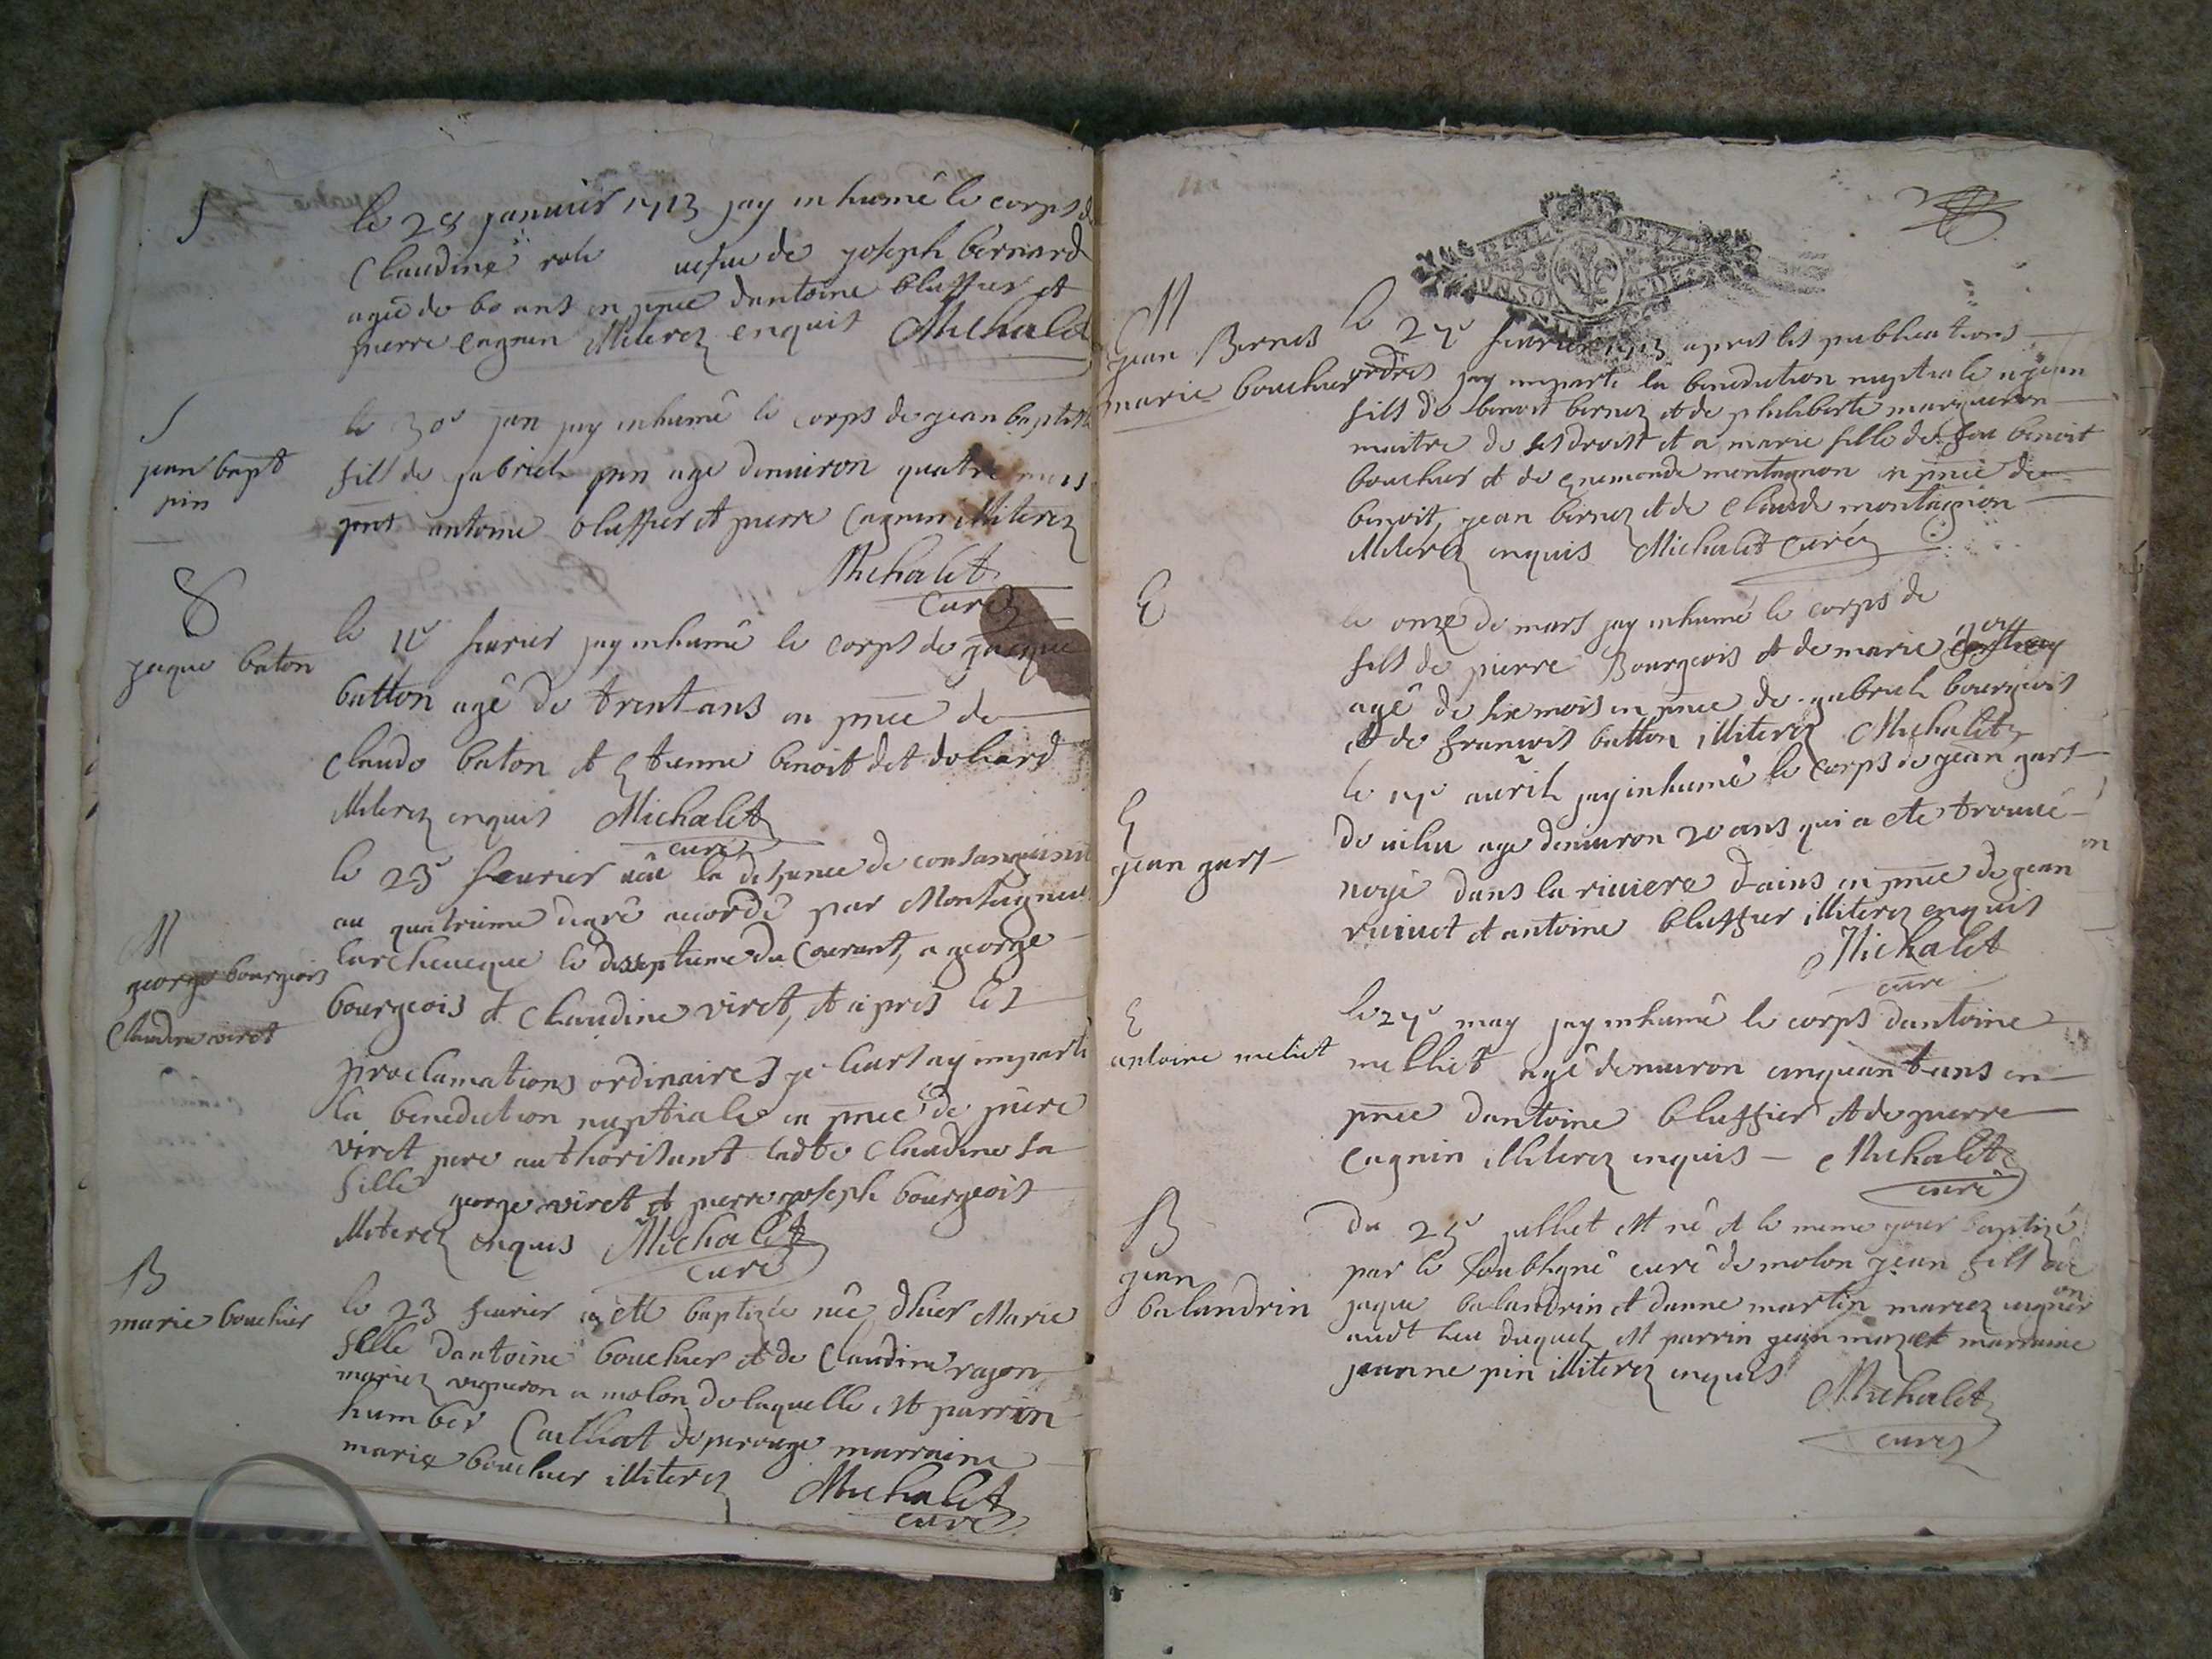 S
le 28 janvier 1713 jay inhumé le corps de
Claudine vefve de joseph bernard
agée de 60 ans en pnce dantoine blaffier et
pierre cagnin illiterez enquis Michalet
S
jean bapt
pin
le 30e jan jay inhumé le corps de jean baptiste
fils de gabriel pin age denviron quatre mois
pnt antoine blaffier et pierre Cagnin illiterez
Michalet
curez
S
jaque baton
le 11e fevrier jay inhumé le corps de jacque
batton agé de trent ans en pnce de
claude baton et etienne benoit dit
illiterez enquis Michalet
curé
M
george bourgeois
Claudine viret
le 23e fevrier veu la dispence de consanguinit
au quatrieme degré accordé par Monseigneur
larcheveque le disseptieme du Courant, a george
bourgeois et claudine viret, et apres les
proclamations ordinaires je leurs ay imparti
la benediction nuptiale en pnce de piere
viret pere authorisant ladte claudine sa
fille george viret et pierre joseph bourgeois
illiterez enquis Michalet
curé
B
marie bouchier
le 23 fevrier a eté baptizée née dhier Marie
fille dantoine bouchier et de Claudine rajon
mariez vigneron a molon de laquelle est parrin
humber Cailliat de perouge marraine
marie bouchier illiterez Michalet
curé
M
jean Bernes
marie bouchier
le 27e fevrier 1713 apres les publications
ordres jay imparti la benediction nuptiale a jean
fils de benoit bernez et de philiberte margueron
maitre de ses droist et a marie fille de feu benoit
bouchier et de enemonde montagnon en pnce de
benoit, jean bernez et de claude montagnon
illiterez enquis Michalet curéz
E
le onze de mars jay inhumé le corps de
fils de pierre Bourgeois et de marie
agé de six mois en pnce de gabriel bourgeois
et de francois batton illiterez Michalet
E
jean gart
le 17e avril jay inhumé le corps de jean gart
de age denviron 20 ans qui a ete trouvé
noyé dans la riviere dains en pnce de jean
et antoine blaffier illiterez enquis
Michalet
curé
E
antoine meliet
le 27e may jay inhumé le corps dantoine
melliet agé denviron cinquant ans en
pnce dantoine blaffier et de pierre
cagnin illiterez enquis Michalet
curé
B
jean
balandrin
Du 25e julliet est né et le meme jour baptizé
par le soubsigné curé de molon jean fils de
jaque balandrin et danne martin mariez vigneron
audt lieu duquel est parrin jean et marraine
jeanne pin illiterez enquis
Michalet
curez